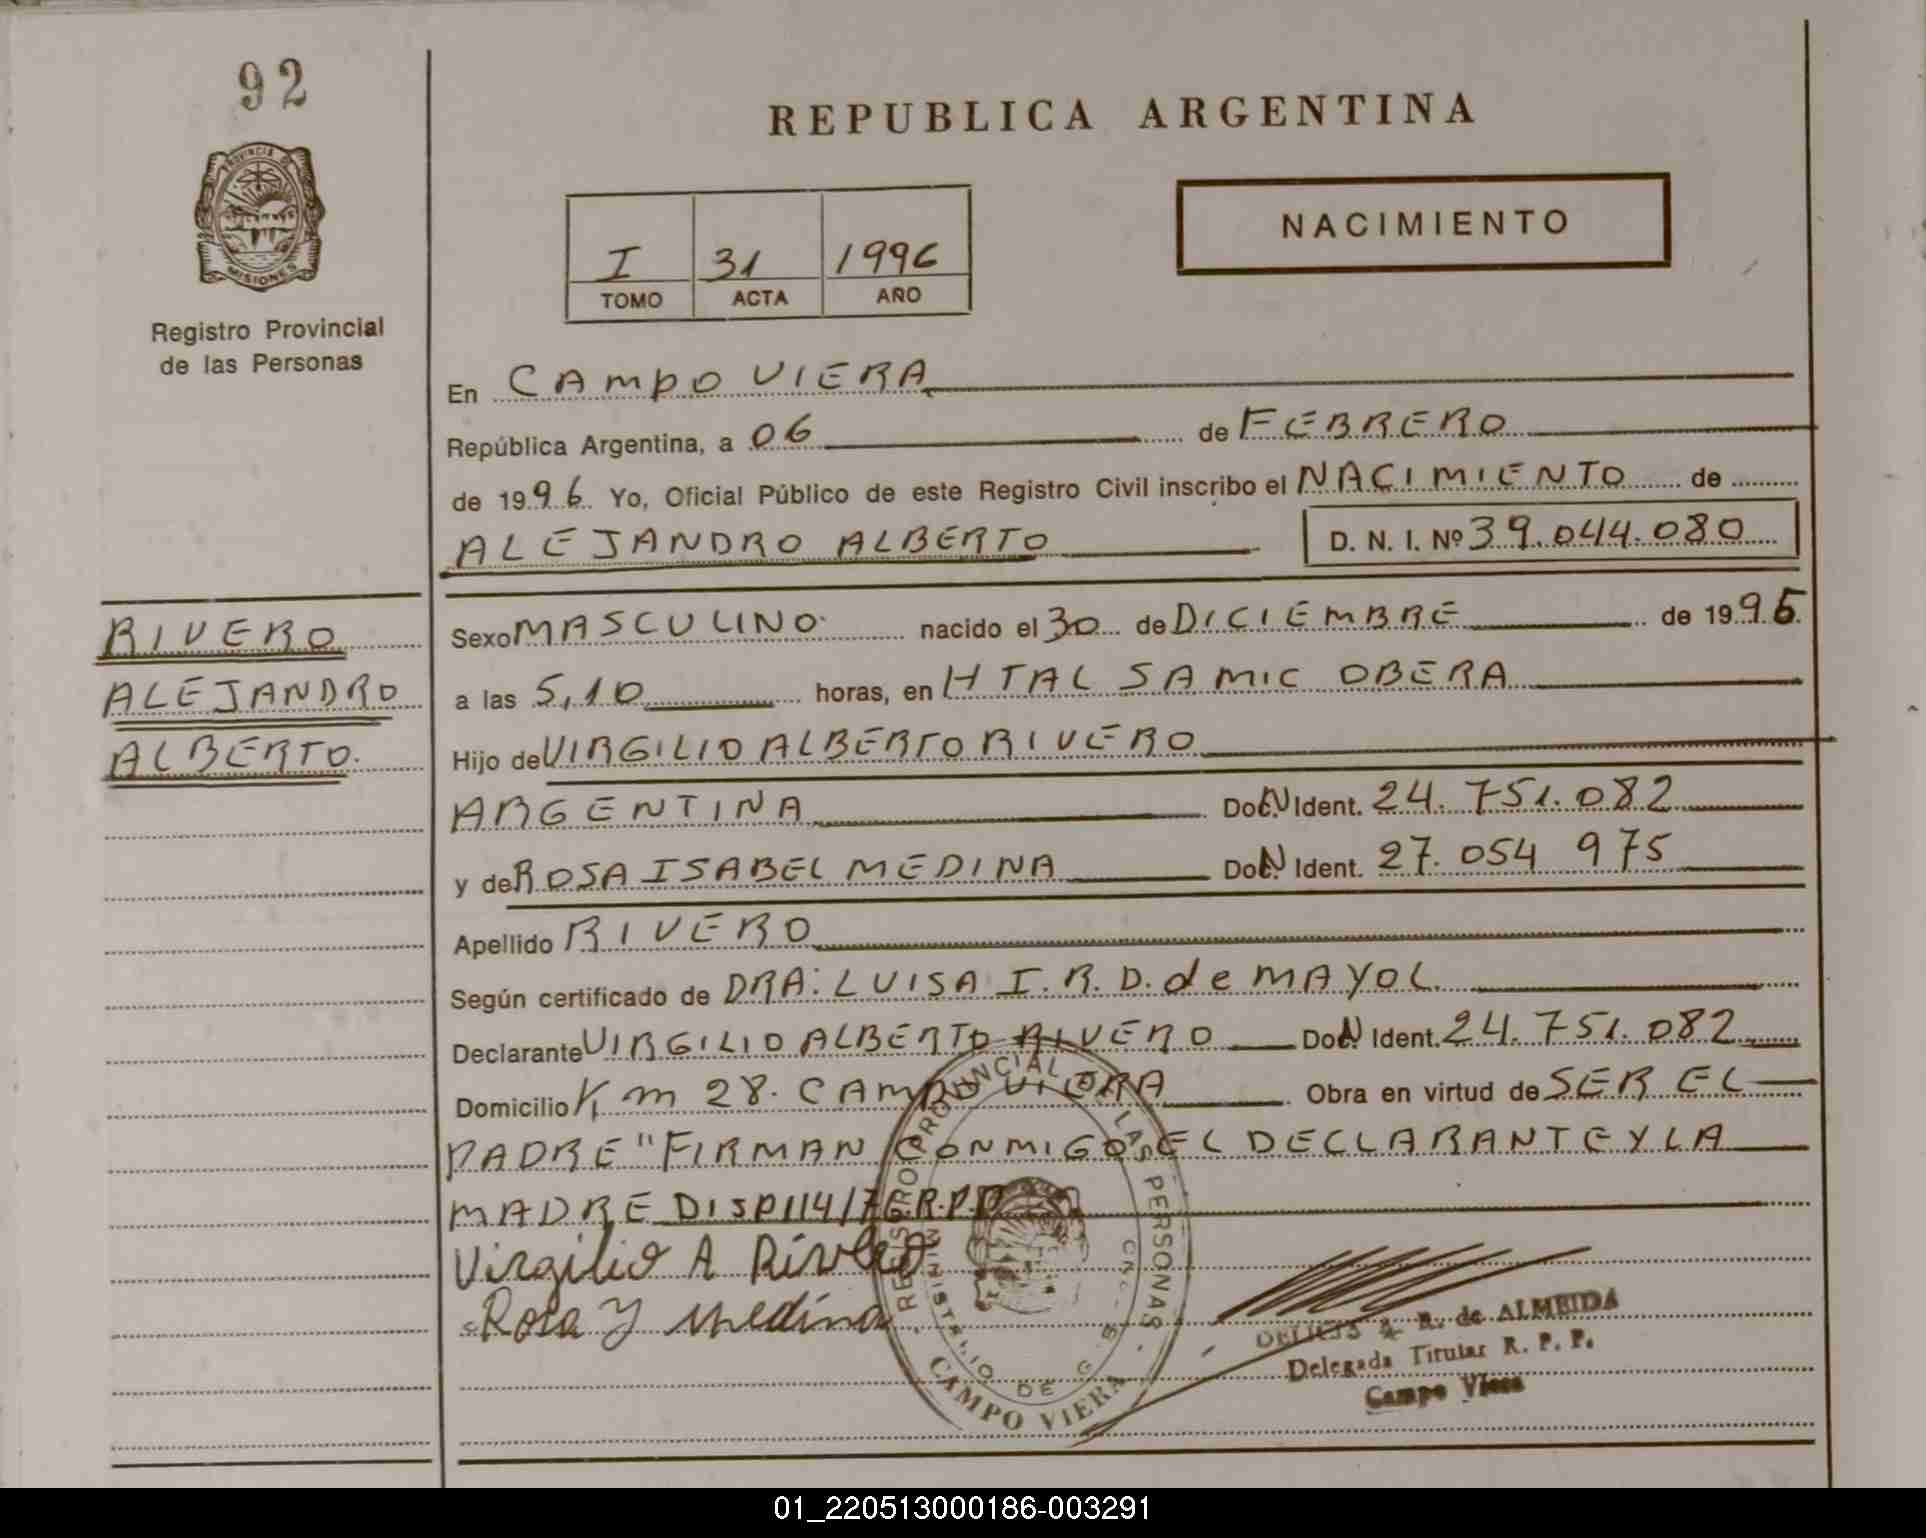 92
PROVINCIA DE
MISIONES
Registro Provincial
de las Personas
REPUBLICA ARGENTINA
I 31 1996
TOMO ACTA AÑO
NACIMIENTO
En CAMPO VIERA
República Argentina, a 06 de FEBRERO
de 1996 Yo, Oficial Público de este Registro Civil inscribo el NACIMIENTO de
ALEJANDRO ALBERTO D. N. I. Nº 39.044.080
RIVERO
ALEJANDRO
ALBERTO.
Sexo MASCULINO nacido el 30 de DICIEMBRE de 1995
a las 5,10 horas, en HTAL SAMIC OBERA
Hijo de VIRGILIO ALBERTO RIVERO
ARGENTINA Doc. N Ident. 24.751.082
y de ROSA ISABEL MEDINA Doc. N Ident. 27.054 975
Apellido RIVERO
Según certificado de DRA: LUISA I. R. D. de MAYOL
Declarante VIRGILIO ALBERTO RIVERO Doc. N Ident. 24.751.082
Domicilio Km 28. CAMPO VIERA Obra en virtud de SER EL
PADRE "FIRMAN CONMIGO EL DECLARANTE Y LA
MADRE DISP114/76.R.P.P
Virgilio A Rivero
Rosa Y Medina
REGISTRO PROVINCIAL DE LAS PERSONAS
MINISTERIO DE G.
CAMPO VIERA
R. de ALMEIDA
Delegada Titular R. P. P.
Campo Viera
01_220513000186-003291